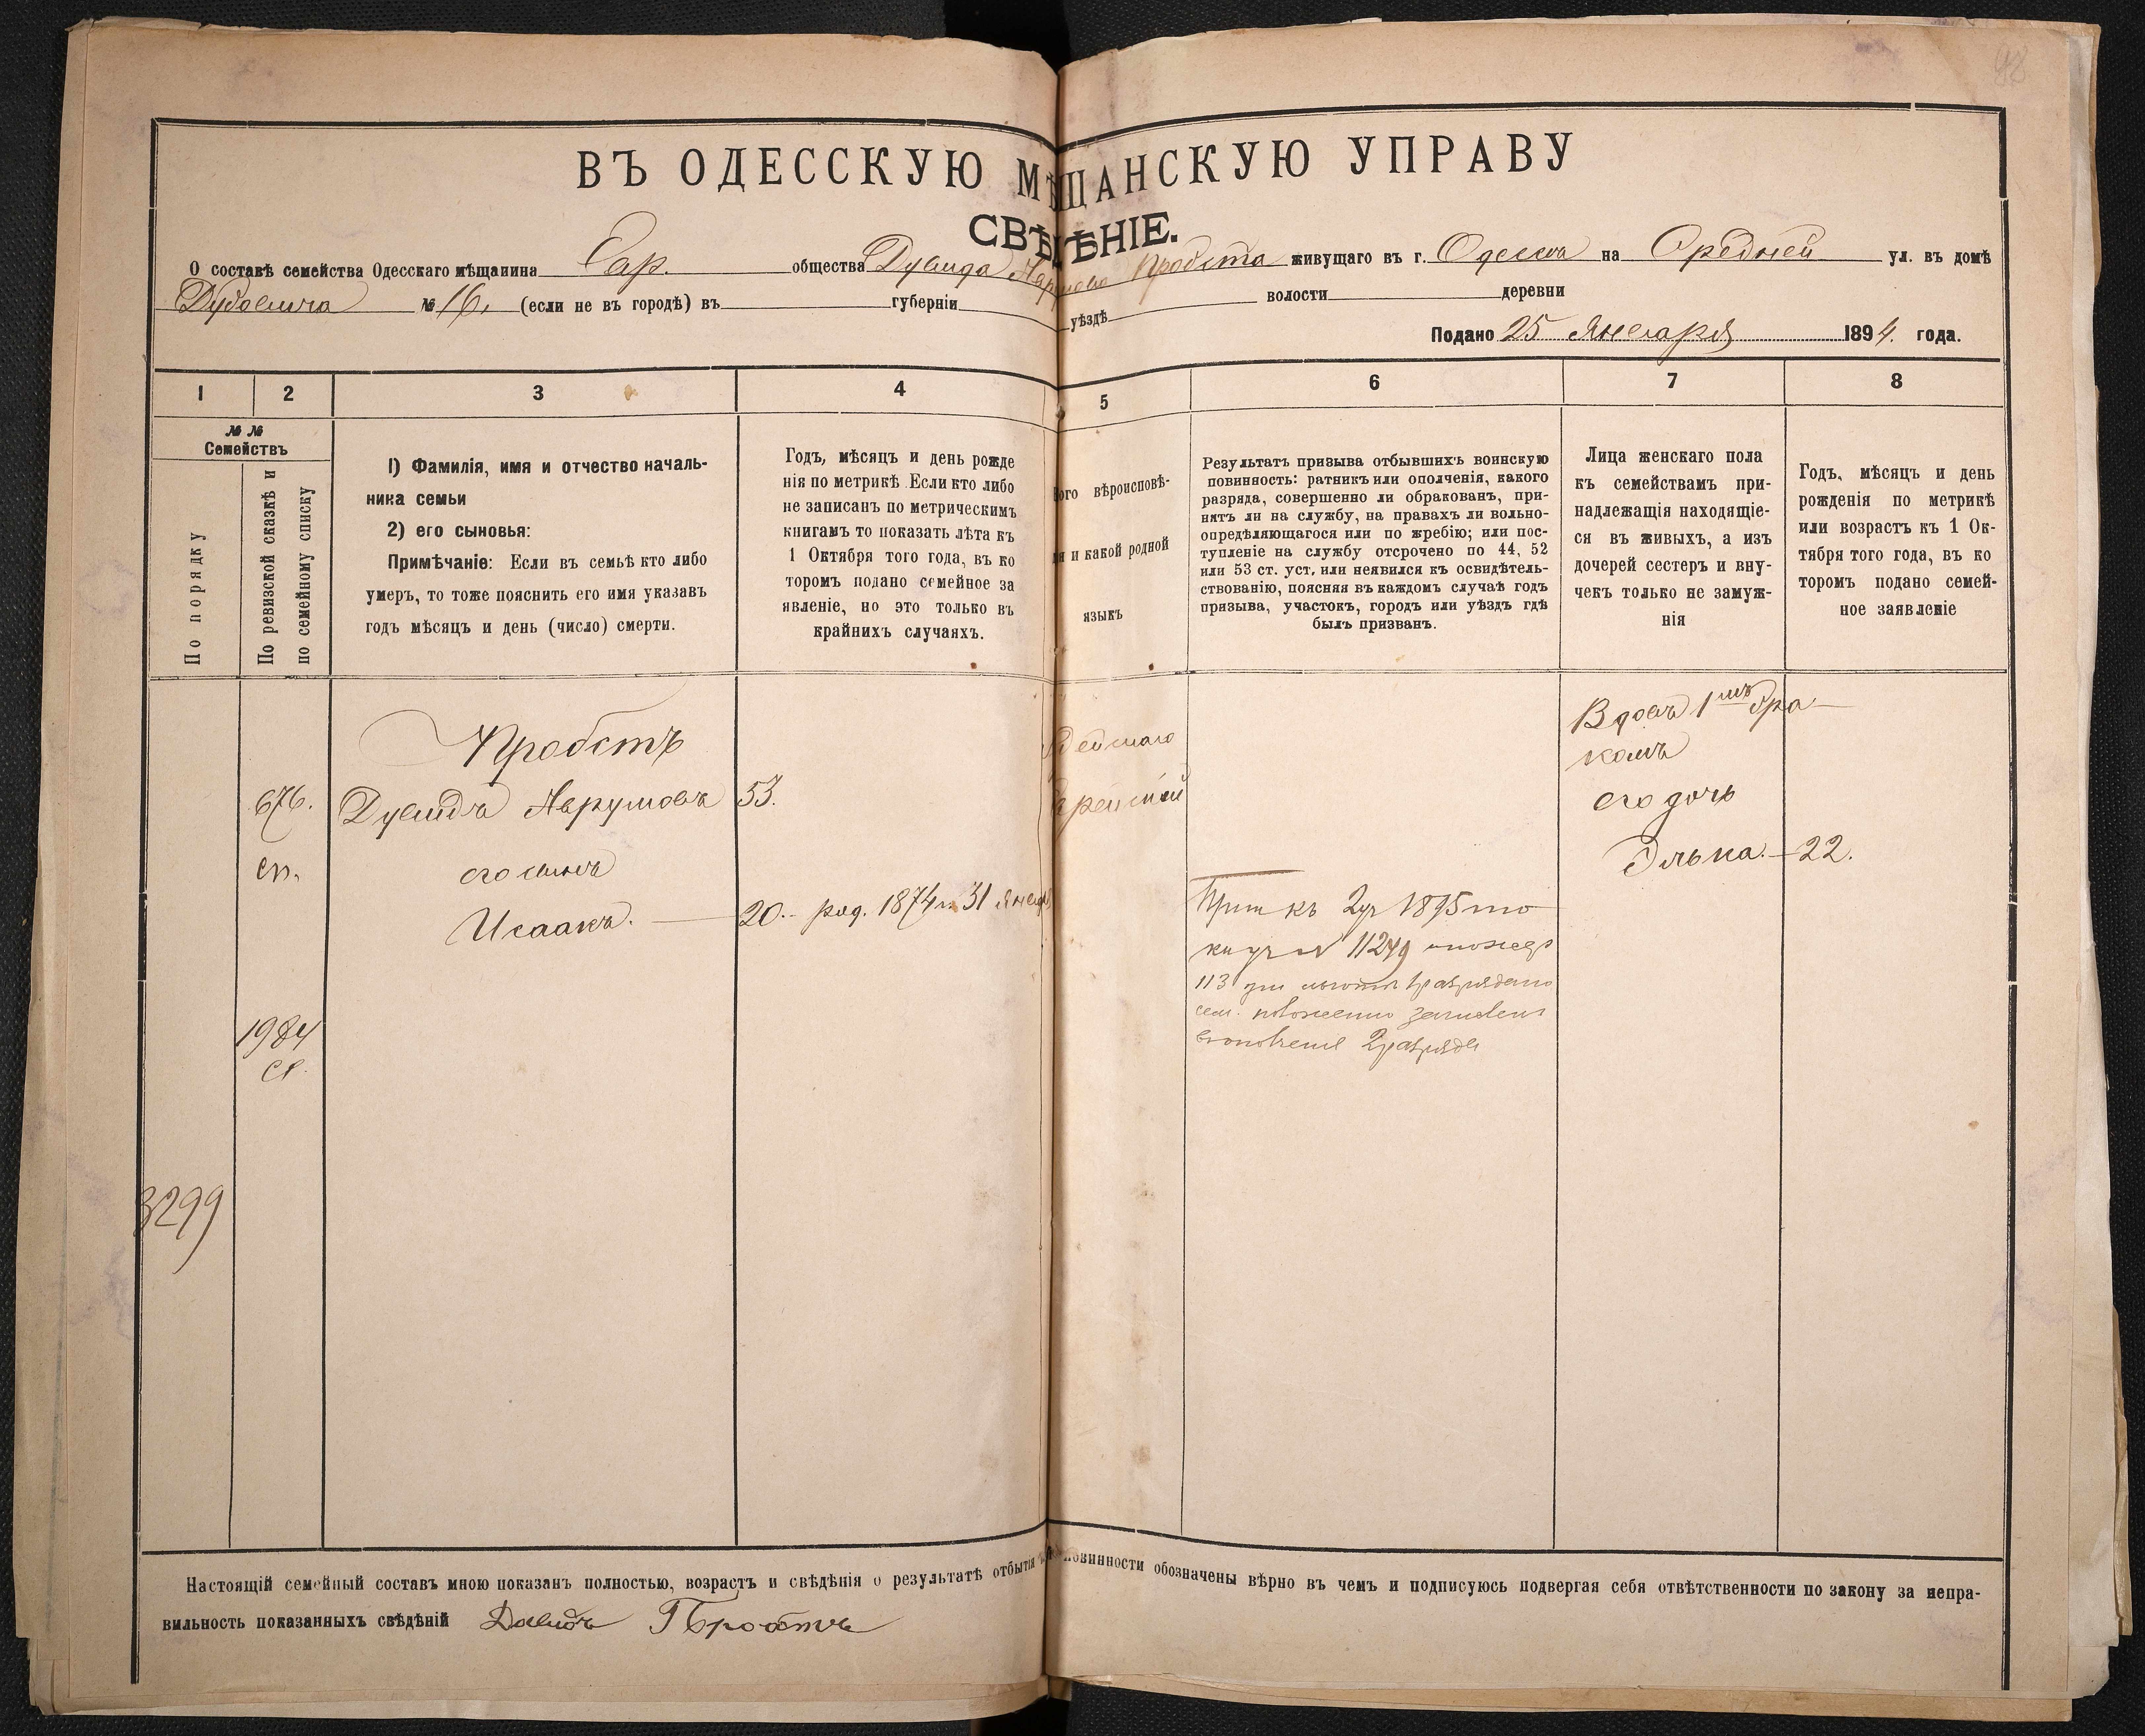 98
ВЪ ОДЕССКУЮ МѢЩАНСКУЮ УПРАВУ
СВѢДѢНІЕ.
О составѣ семейства Одесскаго мѣщанина Евр. общества Дувида Аврумова Пробста живущаго въ г. Одессѣ на Средней ул. въ домѣ
№ 16, (если не въ городѣ) въ губерніи уѣздѣ волости деревни
Подано 25 Января 1894. года.
1 2 3 4 5 6 7 8
№ №
Семействъ
По порядку
По ревизской сказкѣ и
по семейному списку
1) Фамилія, имя и отчество началь-
ника семьи
2) его сыновья:
Примѣчаніе: Если въ семьѣ кто либо
умеръ, то тоже пояснить его имя указавъ
годъ мѣсяцъ и день (число) смерти.
Годъ, мѣсяцъ и день рожде
нія по метрикѣ. Если кто либо
не записанъ по метрическимъ
книгамъ то показать лѣта къ
1 Октября того года, въ ко
торомъ подано семейное за
явленіе, но это только въ
крайнихъ случаяхъ.
кого вѣроисповѣ-
ія и какой родной
языкъ
Результатъ призыва отбывшихъ воинскую
повинность: ратникъ или ополченія, какого
разряда, совершенно ли обракованъ, при-
нятъ ли на службу, на правахъ ли вольно-
опредѣляющагося или по жребію; или пос-
тупленіе на службу отсрочено по 44, 52
или 53 ст. уст, или неявился къ освидѣтель-
ствованію, поясняя въ каждомъ случаѣ годъ
призыва, участокъ, городъ или уѣздъ гдѣ
былъ призванъ.
Лица женскаго пола
къ семействамъ при-
надлежащія находящіе-
ся въ живыхъ, а изъ
дочерей сестеръ и вну-
чекъ только не замуж-
нія
Годъ, мѣсяцъ и день
рожденія по метрикѣ
или возрастъ къ 1 Ок-
тября того года, въ ко
торомъ подано семей-
ное заявленіе
Пробстъ
676. Дувидъ Аврумовъ 53.
сп. его сынъ
Исаакъ. 20. род. 1874 г. 31 Января
1984
сп.
3299
удейскаго
Еврейскій
Приз къ 2 уч 1895
11249
113
2 разряда
Вдовъ 1мъ бра
комъ
его дочь
Элька. 22.
Настоящій семейный составъ мною показанъ полностью, возрастъ и свѣдѣнія о результатѣ отбытія повинности обозначены вѣрно въ чемъ и подписуюсь подвергая себя отвѣтственности по закону за непра-
вильность показанныхъ свѣдѣній Давидъ Пробстъ